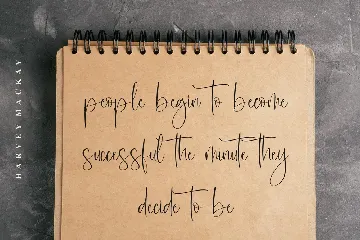 people begin to become
successful the minute they
decide to be
HARVEY MACKAY